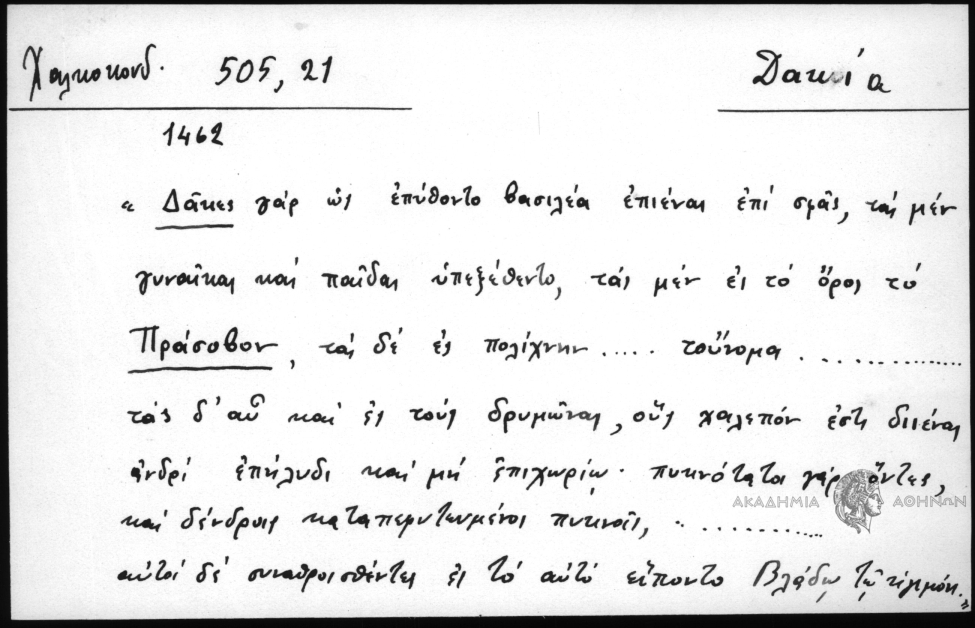 Χαλκοκονδ. 505, 21 Δακία
1462
« Δᾶκες γάρ ὡς ἐπύθοντο βασιλέα ἐπιέναι ἐπί σφᾶς, τάς μέν
γυναῖκας καί παῖδας ὑπεξέθεντο, τάς μέν ἐς τό ὄρος τό
Πράσοβον, τάς δέ ἐς πολίχνην ..... τοὔνομα ................
τάς δ' αὖ καί ἐς τούς δρυμῶνας, οὕς χαλεπόν ἐστι διιέναι
ἀνδρί ἐπήλυδι καί μή ἐπιχωρίῳ· πυκνότατοι γάρ ὄντες,
καί δένδροις καταπεφυτευμένοι πυκνοῖς, ..............
αὐτοί δέ συναθροισθέντες ἐς τό αὐτό εἵποντο Βλάδῳ τῷ ἡγεμόνι.»
ΑΚΑΔΗΜΙΑ ΑΘΗΝΩΝ